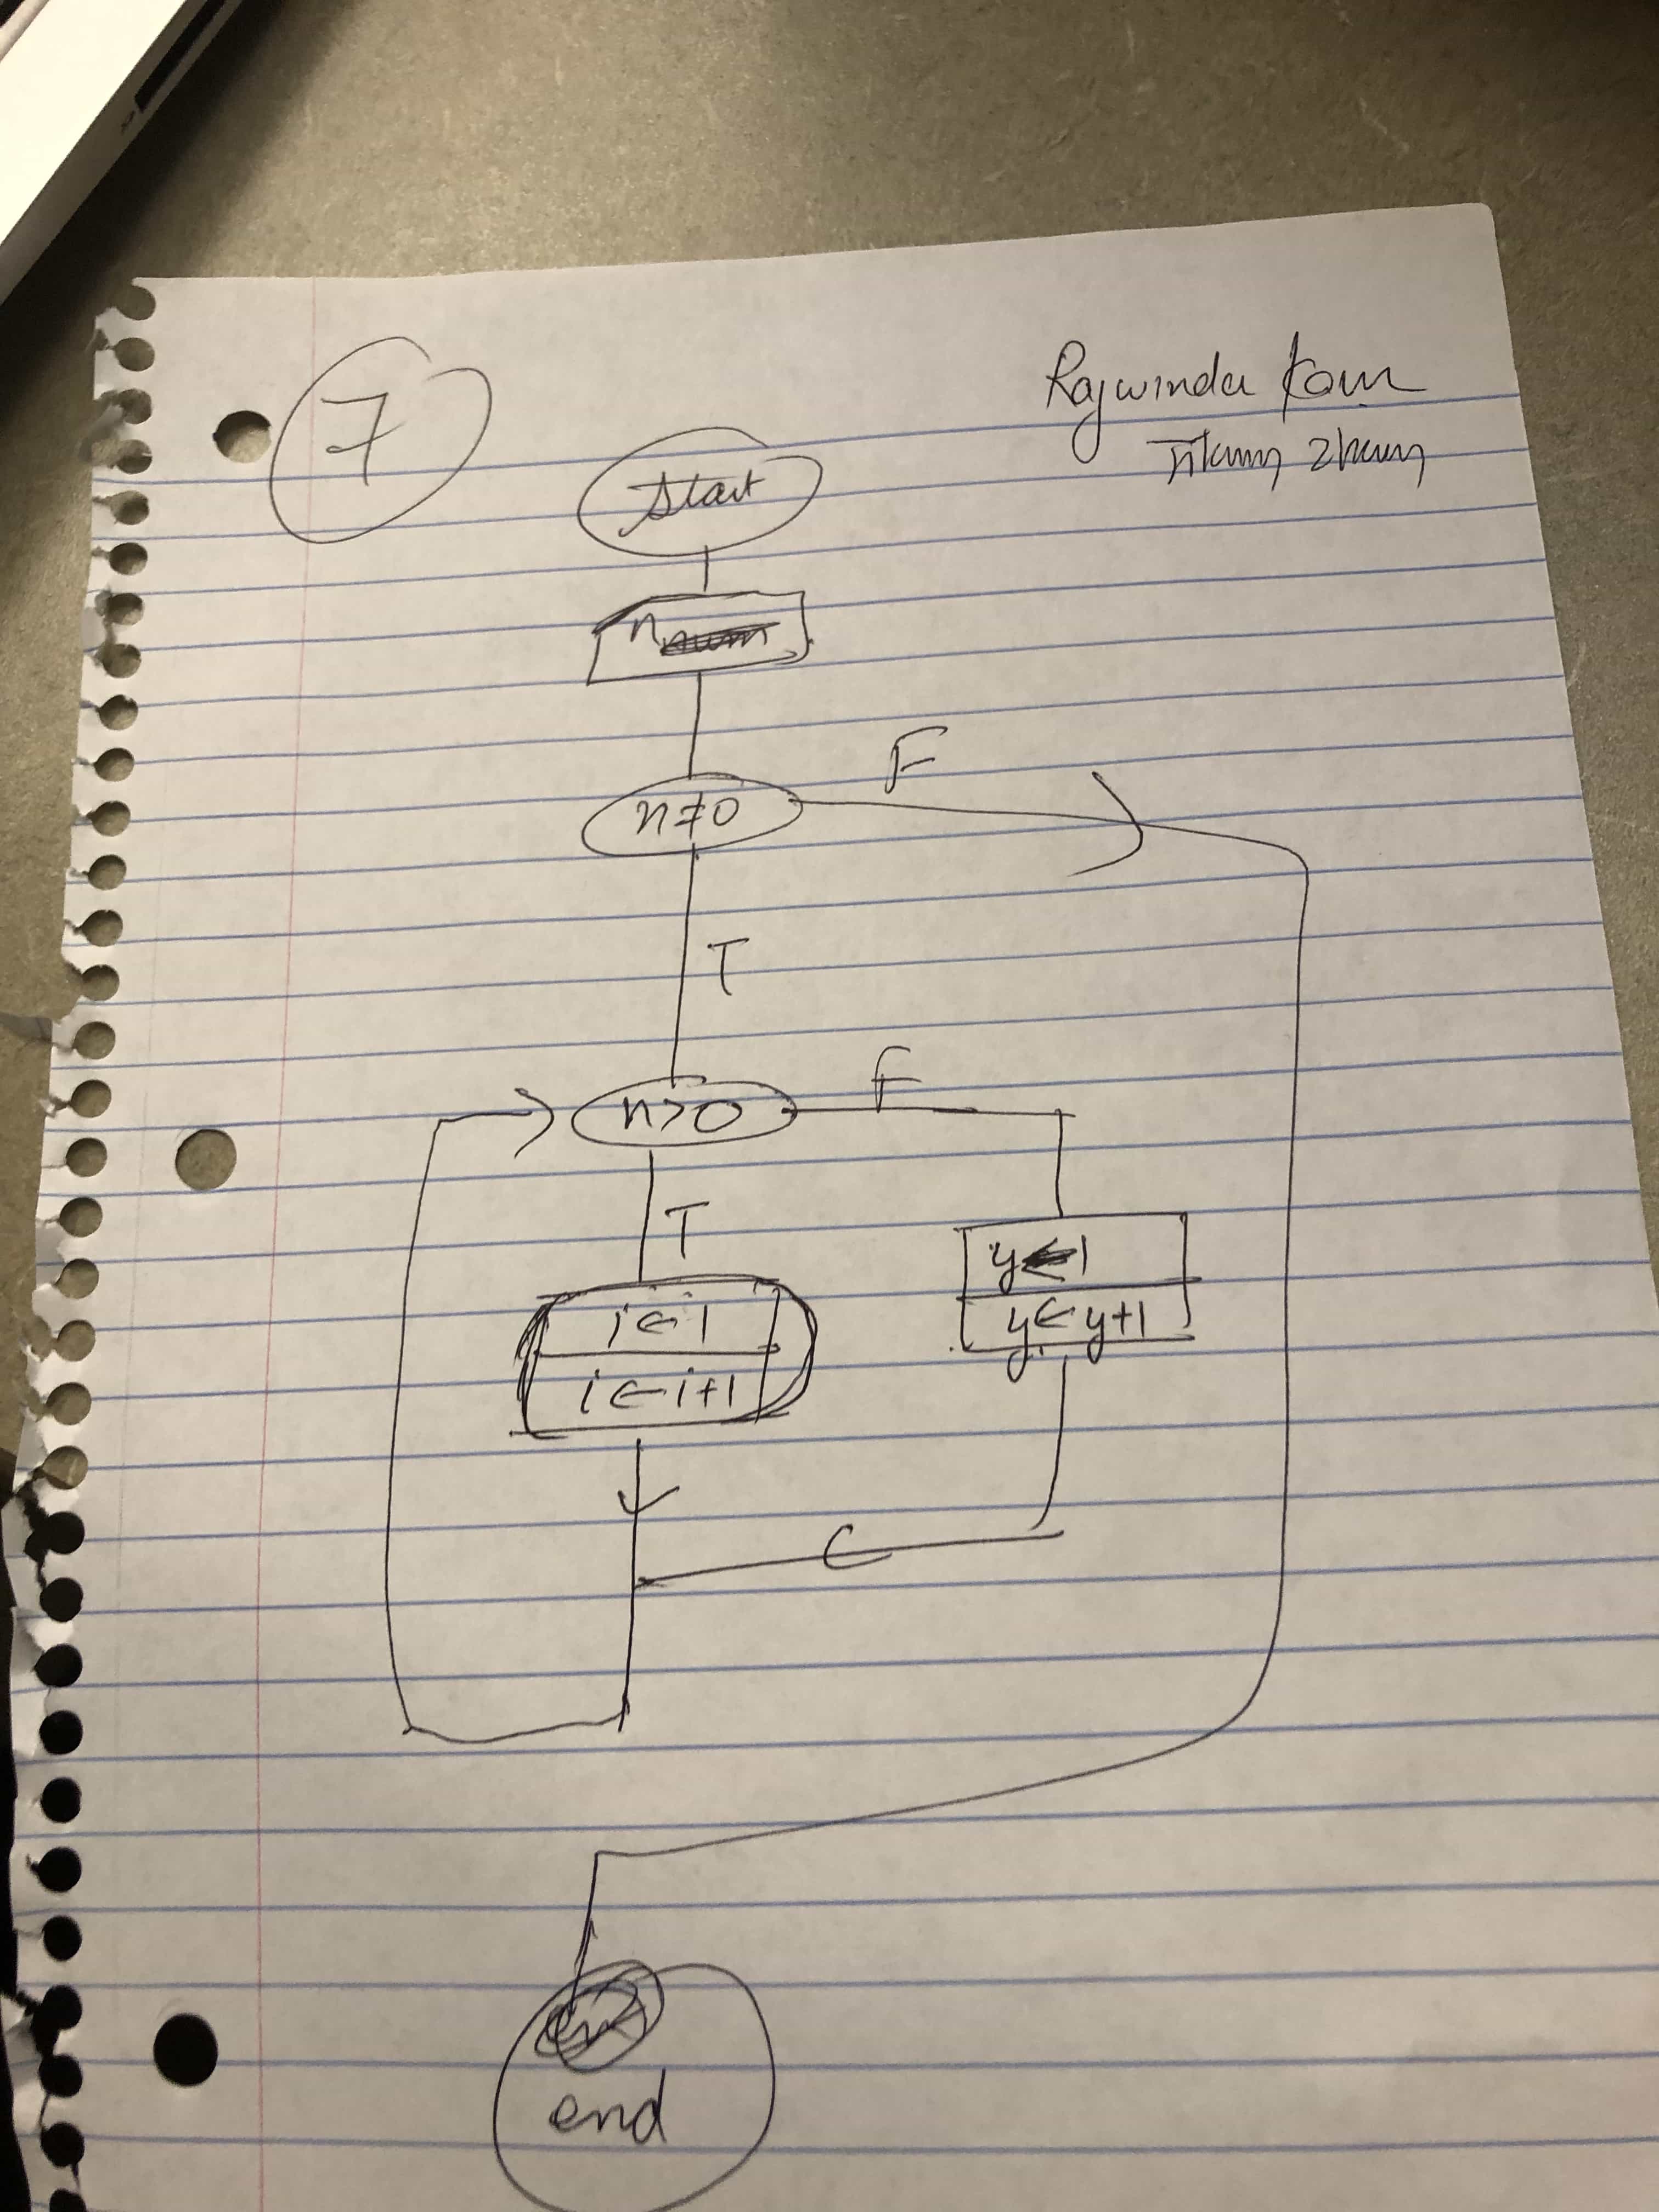 7
Rajwinder Kaur
start
n
n≠0
F
T
n>0
F
T
i←1
i←i+1
y←1
y←y+1
end